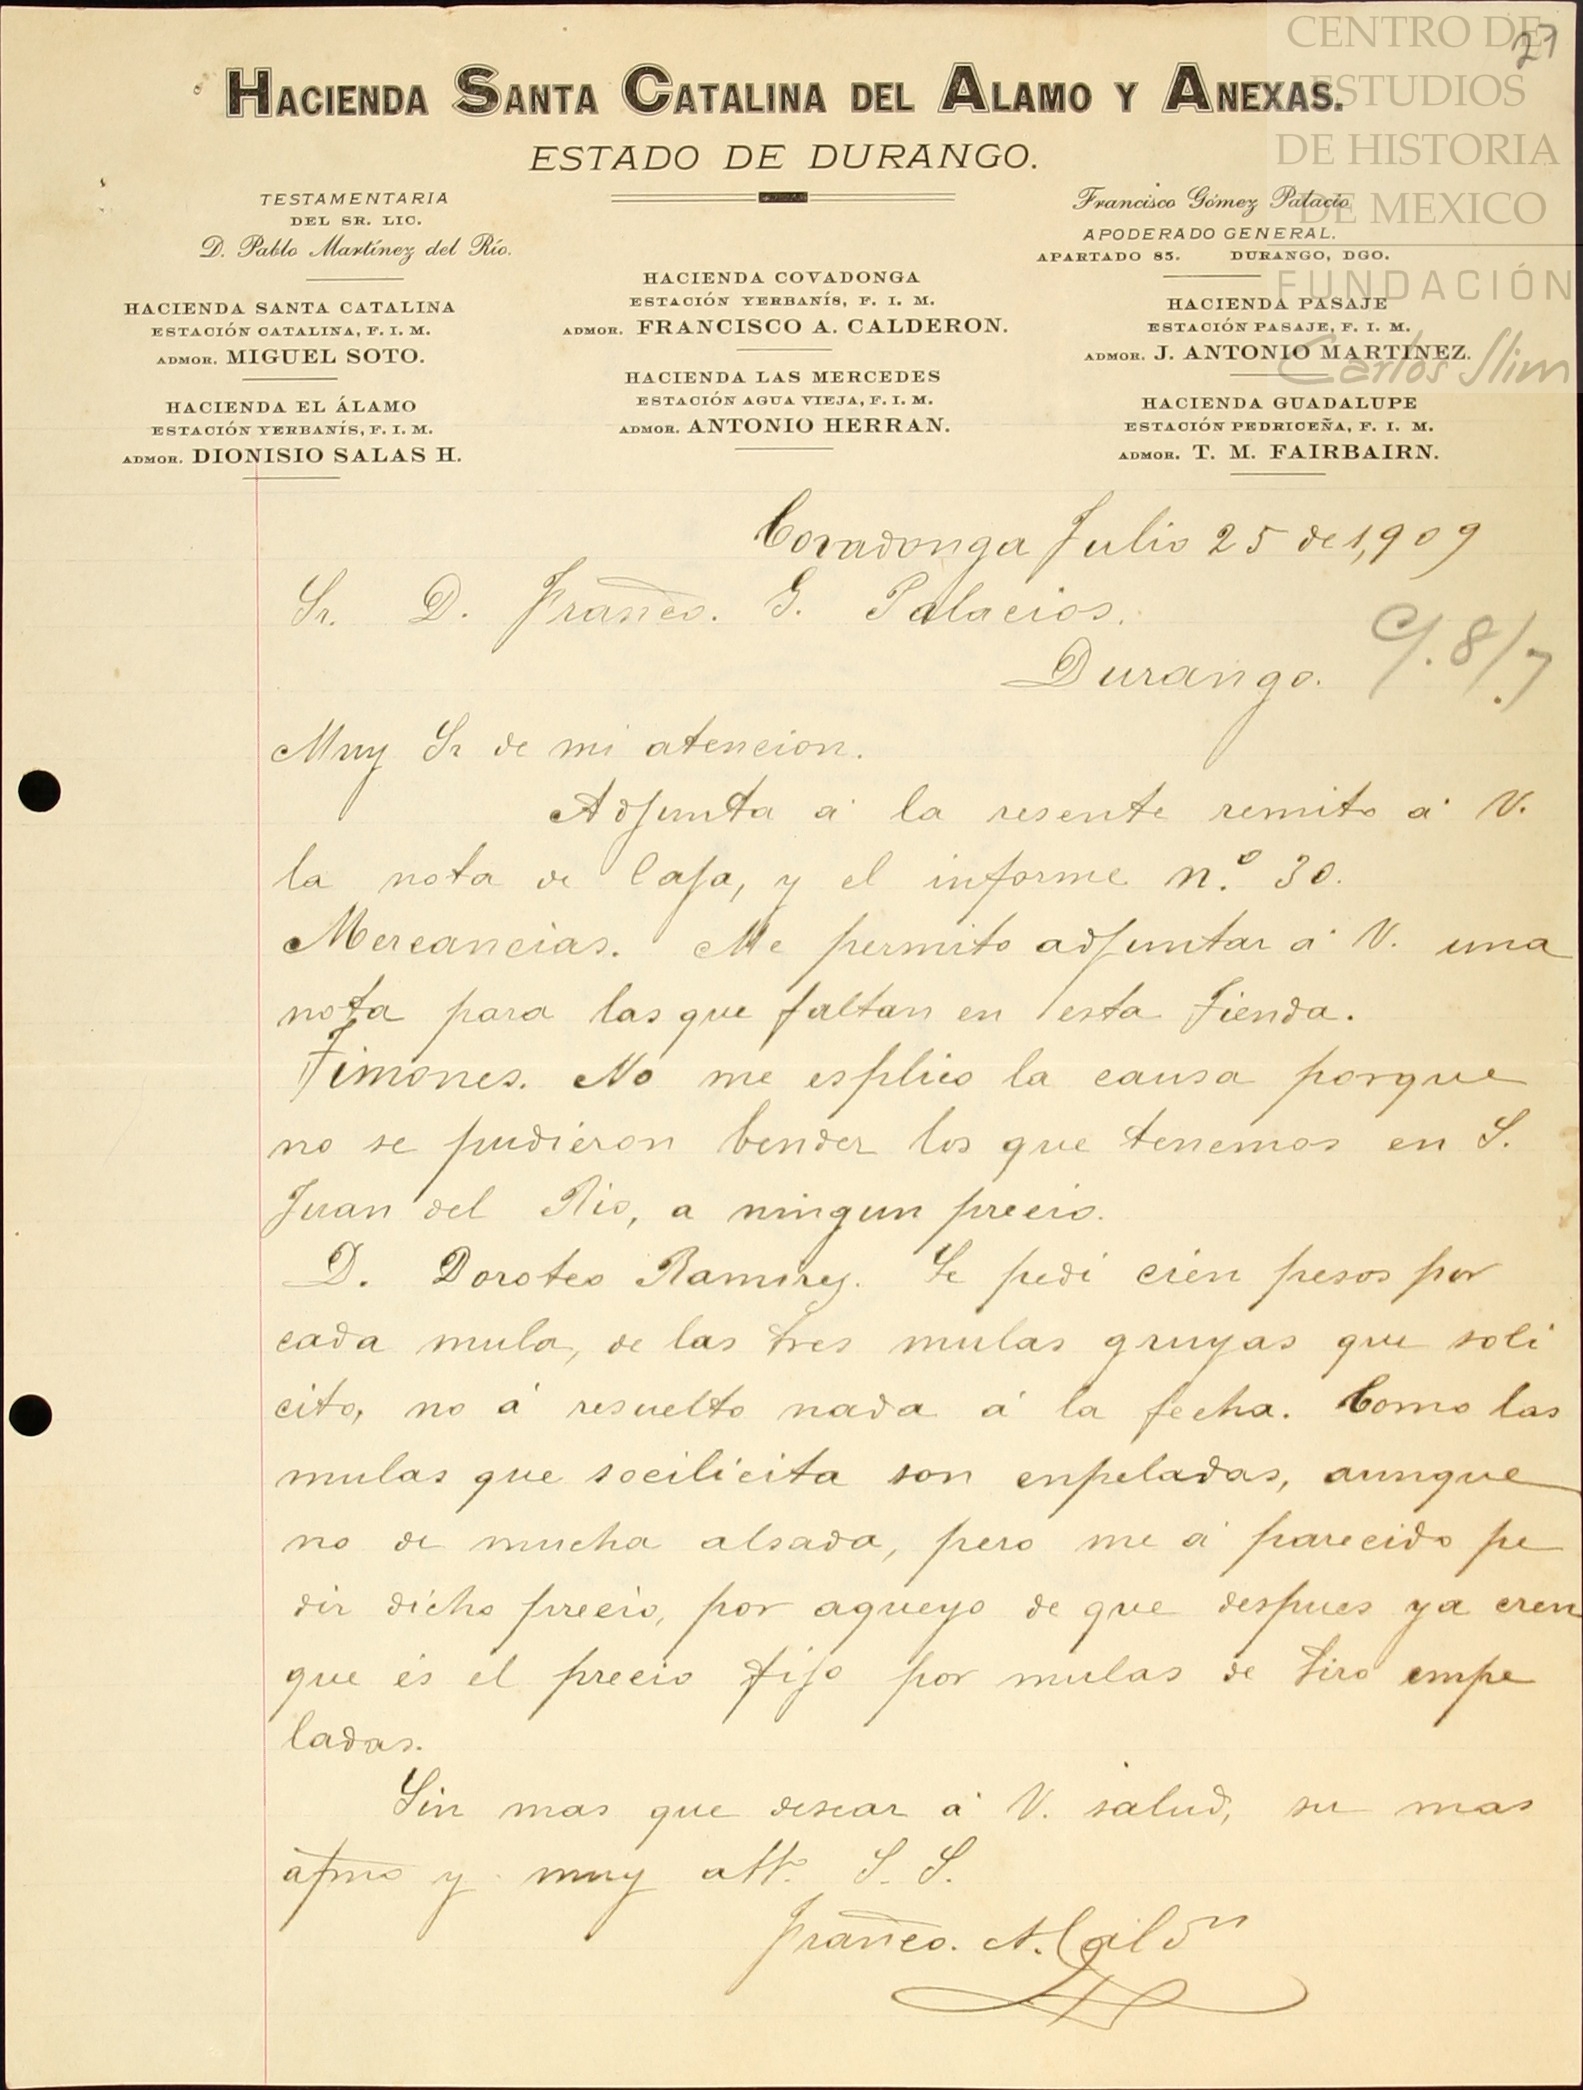 27
CENTRO DE
ESTUDIOS
DE HISTORIA
DE MEXICO
FUNDACIÓN
Carlos Slim
HACIENDA SANTA CATALINA DEL ALAMO Y ANEXAS.
ESTADO DE DURANGO.
TESTAMENTARIA
DEL SR. LIC.
D. Pablo Martínez del Río.
HACIENDA SANTA CATALINA
ESTACIÓN CATALINA, F. I. M.
ADMOR. MIGUEL SOTO.
HACIENDA EL ÁLAMO
ESTACIÓN YERBANÍS, F. I. M.
ADMOR. DIONISIO SALAS H.
HACIENDA COVADONGA
ESTACIÓN YERBANÍS, F. I. M.
ADMOR. FRANCISCO A. CALDERON.
HACIENDA LAS MERCEDES
ESTACIÓN AGUA VIEJA, F. I. M.
ADMOR. ANTONIO HERRAN.
Francisco Gómez Palacio
APODERADO GENERAL.
APARTADO 85. DURANGO, DGO.
HACIENDA PASAJE
ESTACIÓN PASAJE, F. I. M.
ADMOR. J. ANTONIO MARTINEZ.
HACIENDA GUADALUPE
ESTACIÓN PEDRICEÑA, F. I. M.
ADMOR. T. M. FAIRBAIRN.
Covadonga Julio 25 de 1,909
Sr. D. Franco. G. Palacios.
Durango. C/. 8/7
Muy Sr de mi atencion.
Adjunta á la resente remito á V.
la nota de Caja, y el informe n.º 30.
Mercancias. Me permito adjuntar á V. una
nota para las que faltan en esta tienda.
Timones. No me esplico la causa porque
no se pudieron bender los que tenemos en S.
Juan del Rio, a ningun precio.
D. Doroteo Ramirez. Le pedi cien pesos por
cada mula, de las tres mulas gruyas que soli
cito, no á resuelto nada á la fecha. Como las
mulas que socilicita son enpeladas, aunque
no de mucha alsada, pero me á parecido pe
dir dicho precio, por aqueyo de que despues ya cren
que és el precio fijo por mulas de tiro empe
ladas.
Sin mas que desear á V. salud, su mas
afmo y muy att. S. S.
Franco. A. Caldn